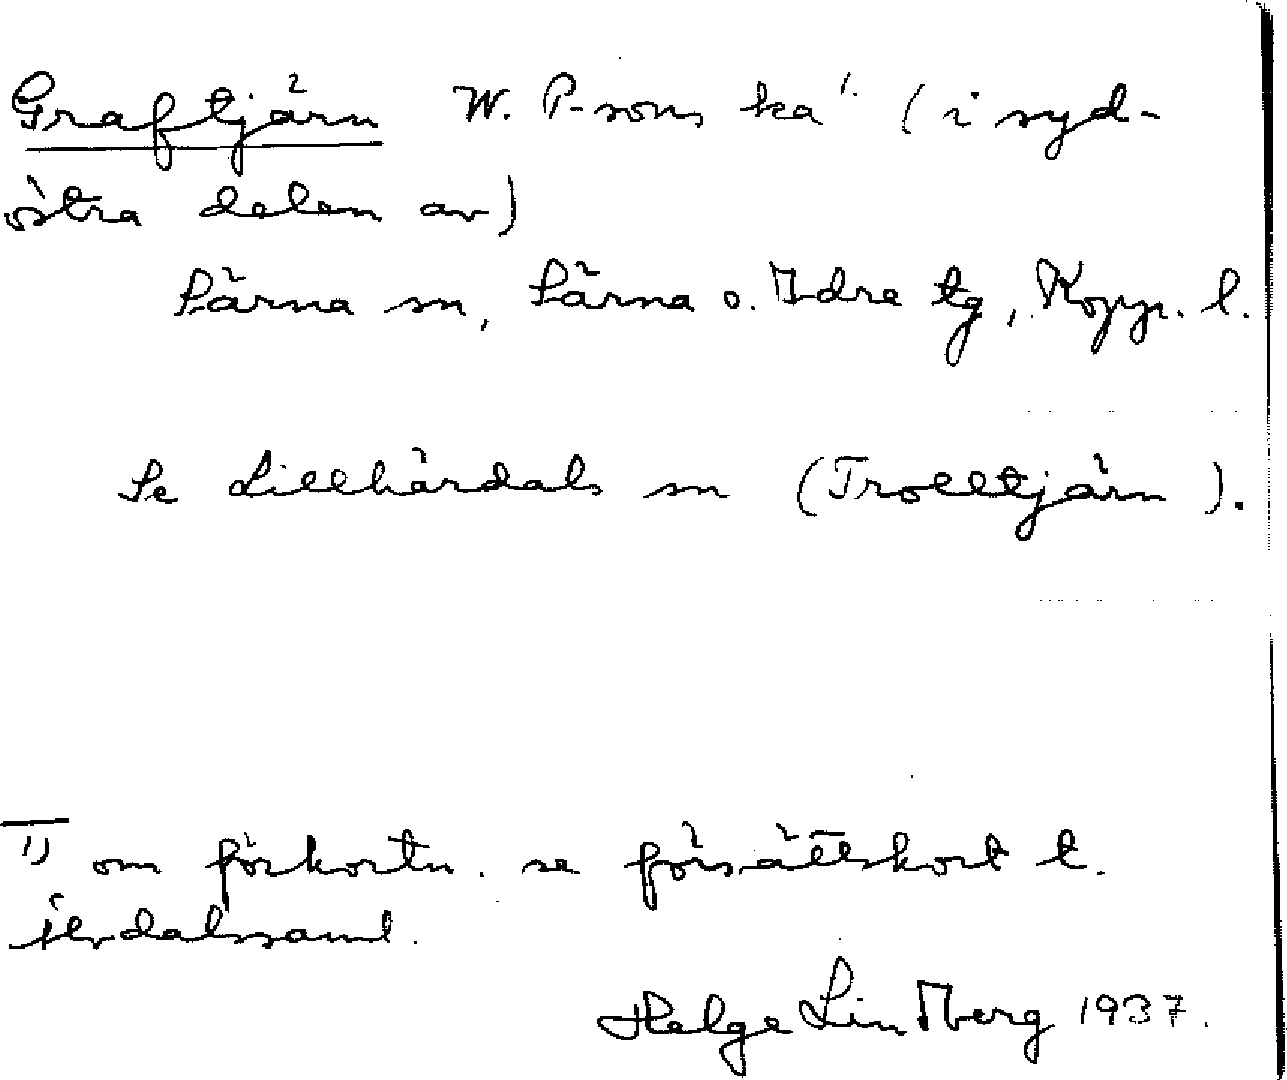 Graftjärn W. P-sons ka¹ (i syd-
östra delen av)
Särna sn, Särna o. Idre tg, Kopp. l.
Se Lillhärdals sn (Trolltjärn).
1) om förkortn. se försättskort t.
älvdalssaml.
Helge Lindberg 1937.